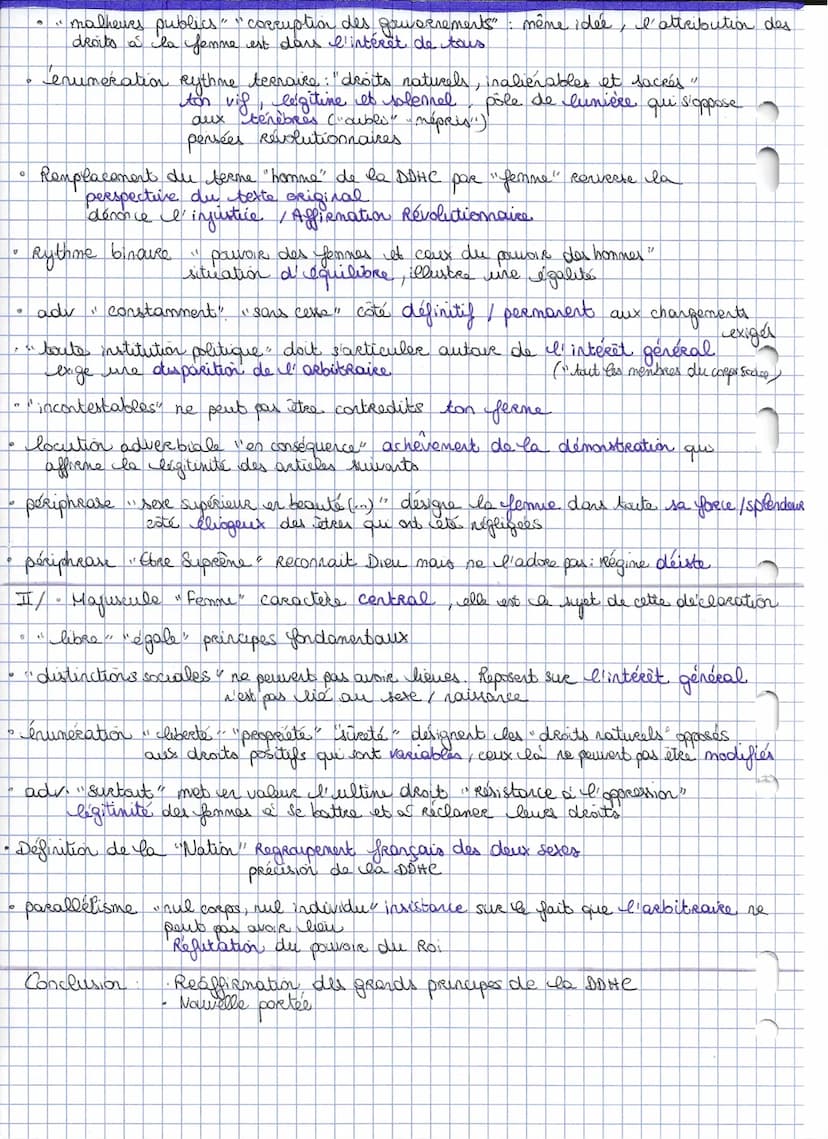 • "malheurs publics" "corruption des gouvernements" : même idée, l'attribution des
droits à la femme est dans l'intérêt de tous
• énumération rythme ternaire : "droits naturels, inaliénables et sacrés"
ton vif, légitime et solennel, pôle de lumière qui s'oppose
aux ténèbres ("oubli" "mépris")
pensées Révolutionnaires
• Remplacement du terme "homme" de la DDHC par "femme" renverse la
perspective du texte original
dénonce l'injustice / Affirmation Révolutionnaire
• Rythme binaire "pouvoir des femmes et ceux du pouvoir des hommes"
situation d'équilibre, illustre une égalité
• adv "constamment" "sans cesse" côté définitif / permanent aux changements
exigés
• "toute institution politique" doit s'articuler autour de l'intérêt général
exige une disparition de l'arbitraire ("tout les membres du corps social)
• "incontestables" ne peut pas être contredits ton ferme
• locution adverbiale "en conséquence" achèvement de la démonstration qui
affirme la légitimité des articles suivants
• périphrase "sexe supérieur en beauté (...)" désigne la femme dans toute sa force / splendeur
côté élogieux des êtres qui ont été négligées
• périphrase "Etre Suprême" Reconnait Dieu mais ne l'adore pas : Régine déiste
II/ • Majuscule "Femme" caractère central, elle est le sujet de cette déclaration
• "libre" "égale" principes fondamentaux
• "distinctions sociales" ne peuvent pas avoir lieues. Reposent sur l'intérêt général
n'est pas lié au sexe / naissance
• énumération "liberté" "propriété" "sûreté" désignent les "droits naturels" opposés
aux droits positifs qui sont variables, ceux là ne peuvent pas être modifiés
• adv. "surtout" met en valeur l'ultime droit "résistance à l'oppression"
légitimité des femmes à se battre et à réclamer leurs droits
• Définition de la "Nation" Regroupement français des deux sexes
précision de la DDHC
• parallélisme "nul corps, nul individu" insistance sur le fait que l'arbitraire ne
peut pas avoir lieu
Réfutation du pouvoir du Roi
Conclusion : • Réaffirmation des grands principes de la DDHC
• Nouvelle portée